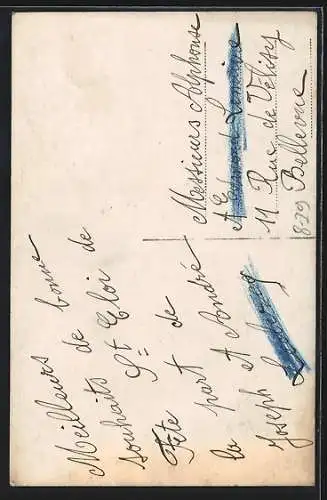 Meilleurs de bonne
souhaits St Eloi de
Fête
part de
la et André
Joseph
Messieurs Alphonse
11 Rue de Vélizy
Bellevue
8-29